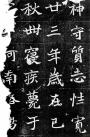 神守質志性寬
廿三年歲在己
秋卅寢疾薨于
河南